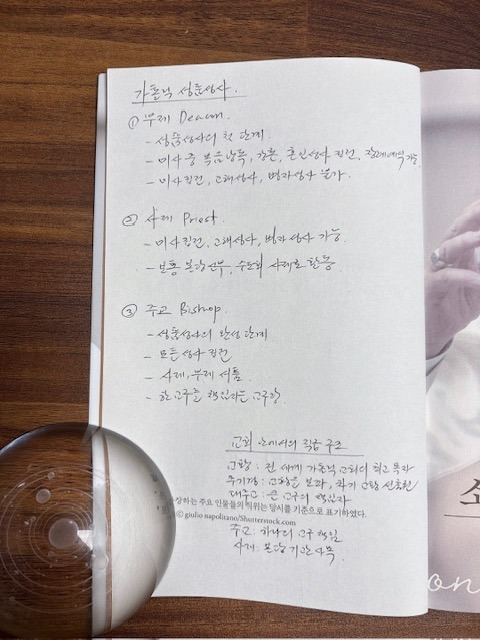 가톨릭 성품성사.
① 부제 Deacon.
- 성품성사의 첫 단계.
- 미사 중 복음낭독, 강론, 혼인성사 집전, 장례예식 가능
- 미사집전, 고해성사, 병자성사 불가.
② 사제 Priest.
- 미사집전, 고해성사, 병자성사 가능
- 보통 본당신부, 수도회 사제로 활동
③ 주교 Bishop.
- 성품성사의 완성 단계
- 모든 성사 집전
- 사제, 부제 서품.
- 한 교구를 책임지는 교구장.
교회 안에서의 직급 구조
교황 : 전 세계 가톨릭 교회의 최고 목자
추기경 : 교황을 보좌, 차기 교황 선출권
대주교 : 큰 교구의 책임자
장하는 주요 인물들의 직위는 당시를 기준으로 표기하였다.
ⓒ giulio napolitano/Shutterstock.com
주교 : 하나의 교구 책임
사제 : 본당
소
on